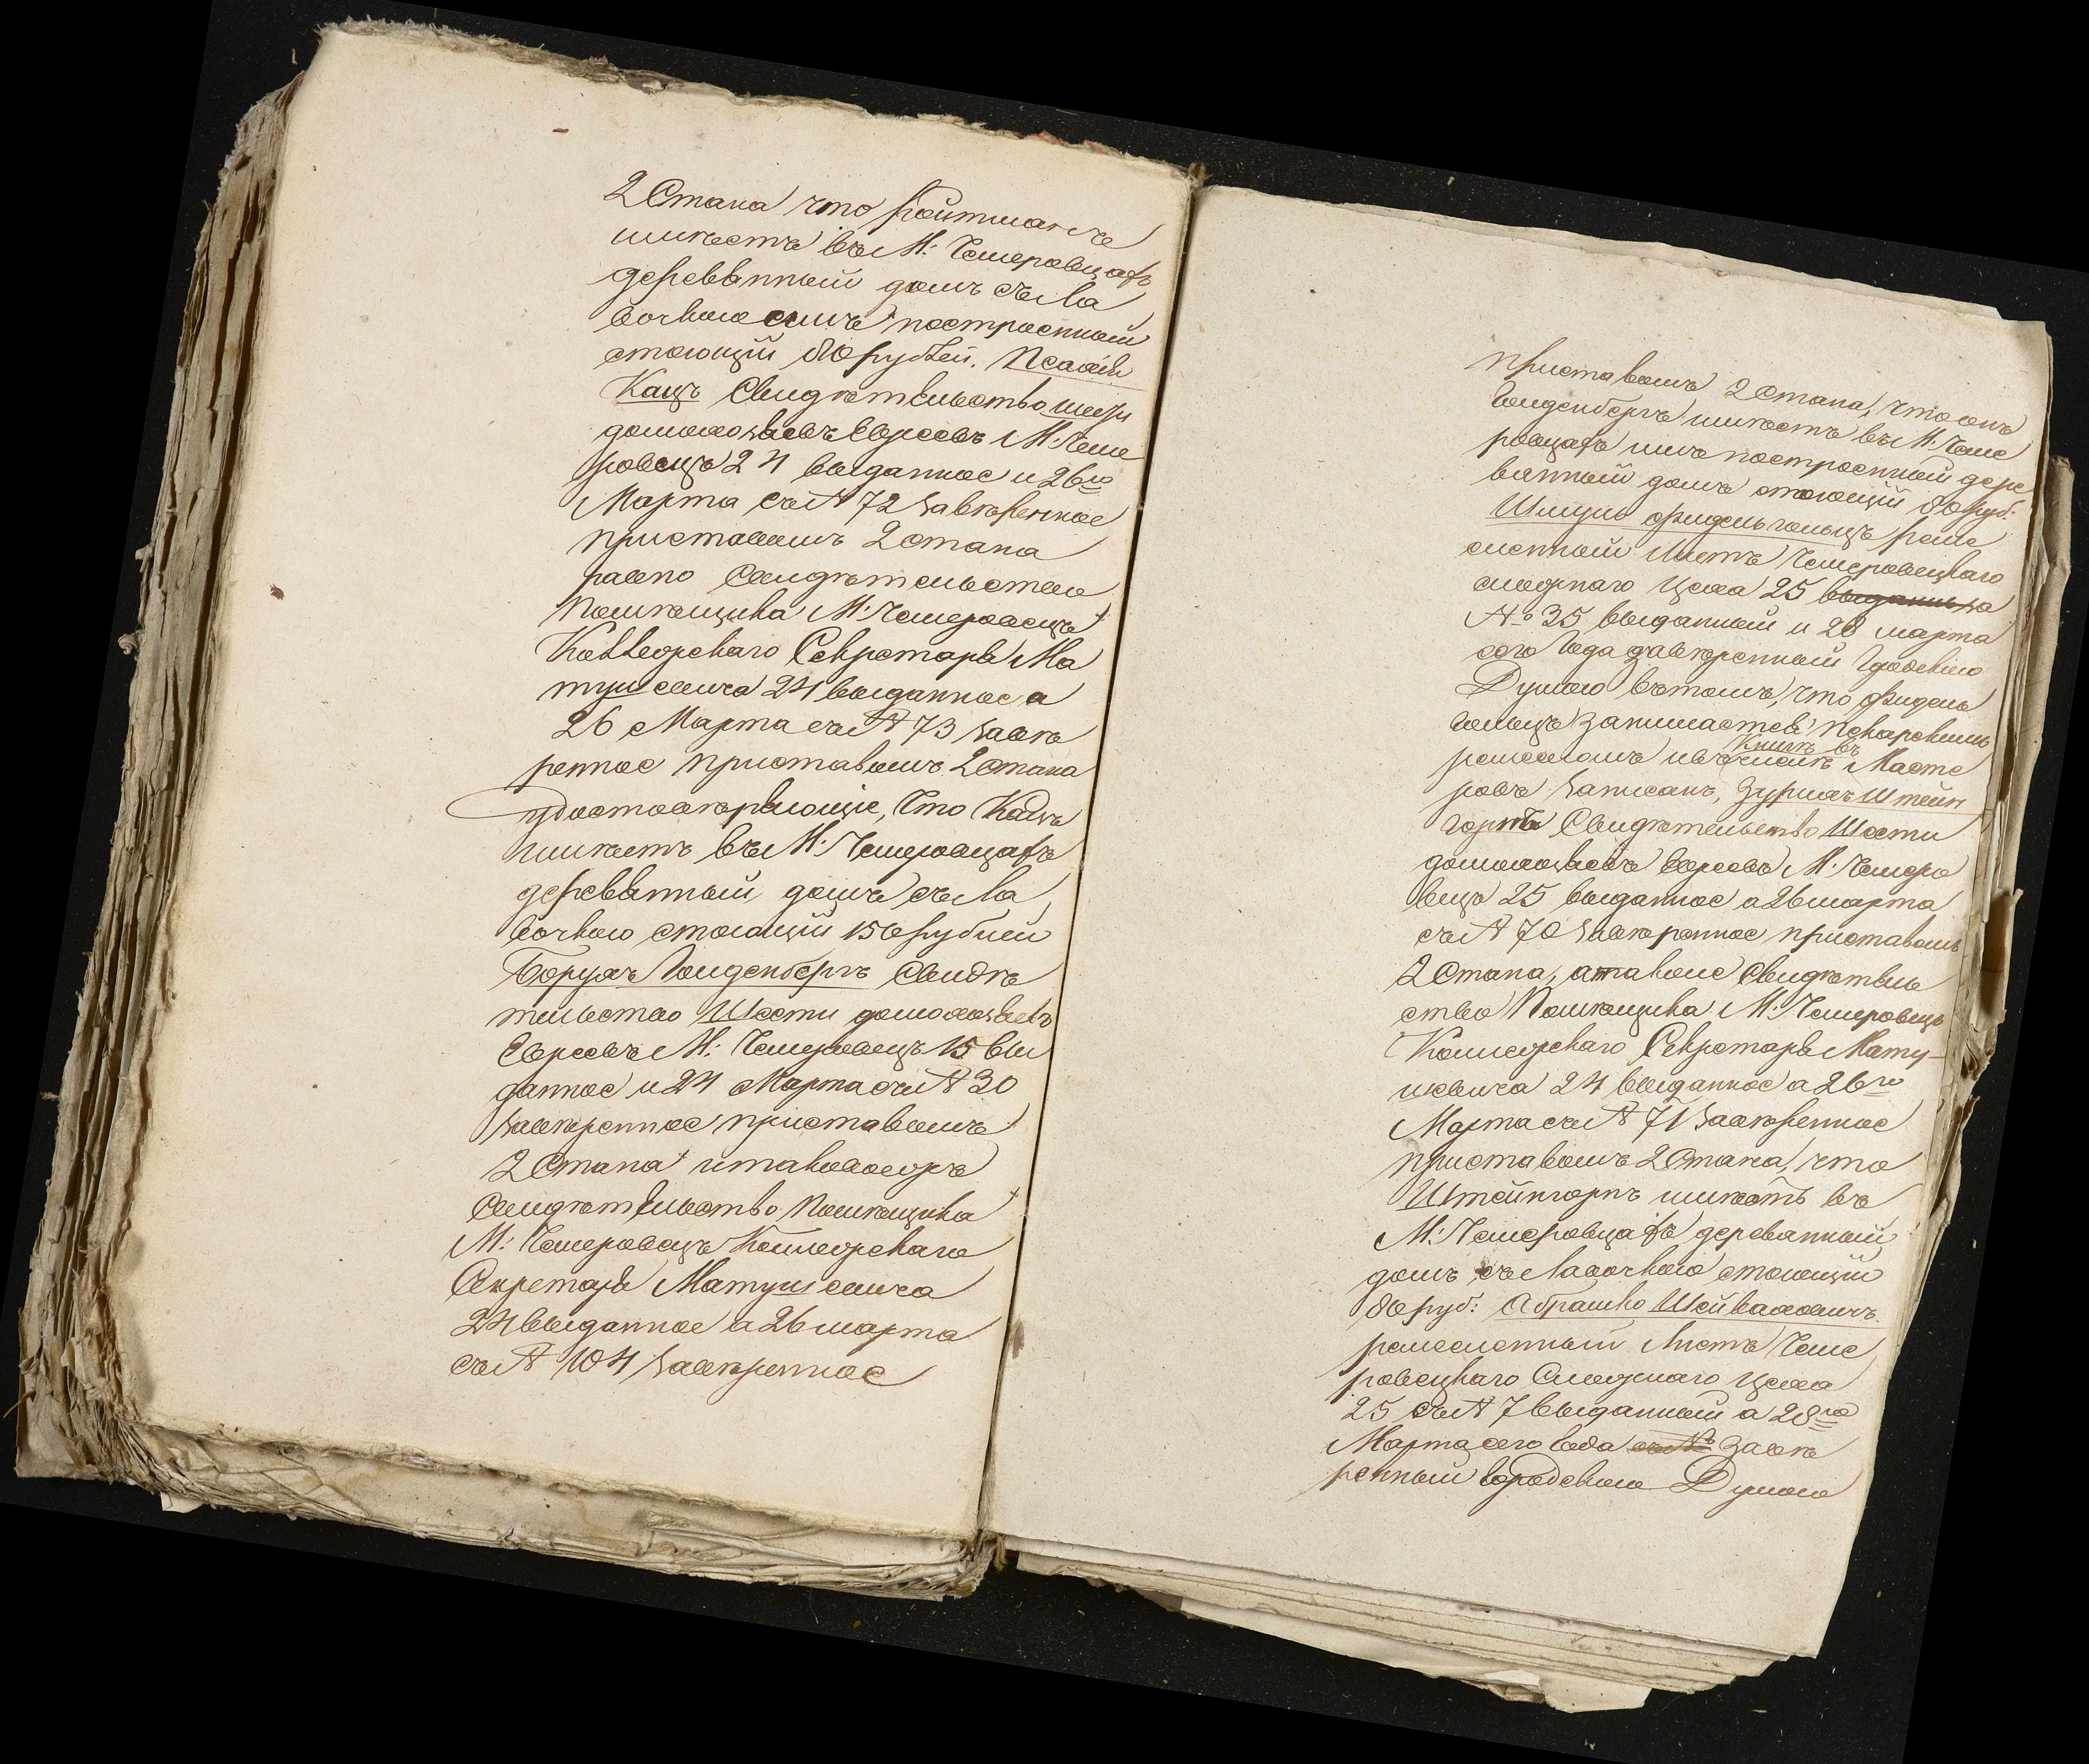 2 Стана что Ройтманъ
имѣетъ въ М: Чемеровцахъ
деревянный домъ съ ла
вочкою симъ построенный
стоющій 80 рублей. Исаакъ
Кацъ Свидѣтельство шести
домохозяевъ Евреевъ М: Чеме
ровецъ 24 выданное и 26го
Марта съ № 72 завѣренное
приставомъ 2 стана
равно Свидѣтельство
Помѣщика М: Чемеровецъ
Коллежскаго Секретаря Ма
тушевича 24 выданное а
26 Марта съ № 73 завѣ
ренное приставомъ 2 Стана
удостовѣряющіе, что Кацъ
имѣетъ въ М: Чемеровцахъ
деревянный домъ съ ла
вочкою стоющій 150 рублей
Борухъ Гольденбергъ Свидѣ
тельство Шести домохозяевъ
Евреевъ М: Чемеровецъ 15 вы
данное и 24 Марта съ № 30
завѣренное приставомъ
2 Стана и таковое жъ
Свидѣтельство Помѣщика
М: Чемеровецъ Коллежскаго
Секретаря Матушевича
24 выданное а 26 марта
съ № 104 завѣренное
приставомъ 2 Стана, что онъ
Гольденбергъ имѣетъ въ М: Чеме
ровцахъ имъ построенный дере
вянный домъ стоющій 80 руб.
Шмуль Фидельгольцъ реме
сленный листъ Чемеровецкаго
сложнаго цеха 25 выданъ за
№ 35 выданный и 28 марта
сего года завѣренный Градскою
Думою въ томъ, что Фидель
гольцъ занимается Пекарскимъ
ремесломъ и въ числѣ Масте
Книгѣ въ
ровъ записанъ, Зурихъ Штейн
горнъ Свидѣтельство Шести
домохозяевъ Евреевъ М: Чемеро
вецъ 25 выданное а 26 марта
съ № 70 завѣренное приставомъ
2 Стана, а также Свидѣтель
ство Помѣщика М: Чемеровецъ
Коллежскаго Секретаря Мату-
шевича 24 выданное а 26го
Марта съ № 71 завѣренное
приставомъ 2 Стана, что
Штейнгорнъ имѣетъ въ
М: Чемеровцахъ деревянный
домъ съ лавочкою стоющій
80 руб: Абрамко Шейваховичъ
ремесленный листъ Чеме
ровецкаго Сложнаго цеха
25 съ № 7 выданный а 28го
Марта сего года съ № завѣ
ренный Градскою Думою